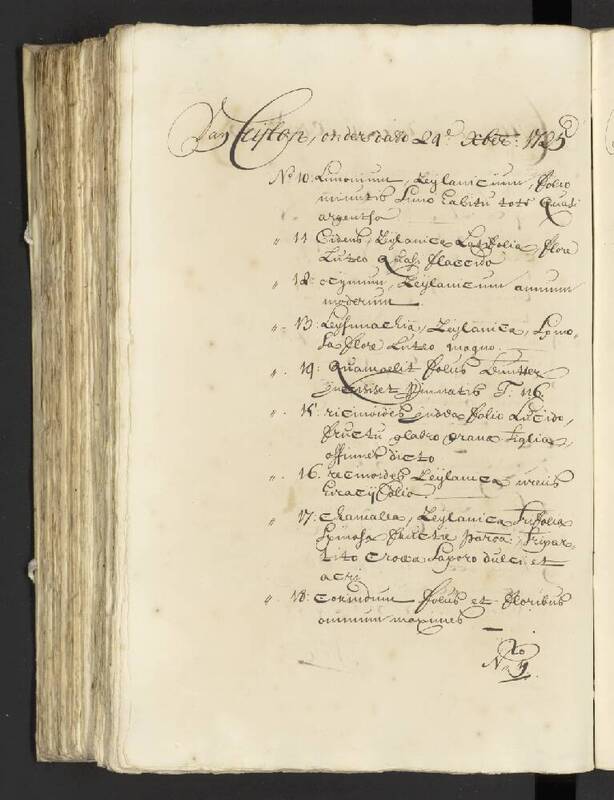 Van Ceijlon, onder dato 24e. Xber: 1725
No 10: Limonium, Zeylanicum, folio
minutis Simo habitu toto quasi
argenteo
" 11 Bidens, Zeylanica Latifolia, flore
Luteo quasi flaccido
" 12: ocymum, Zeylanicum annum
moderum.
" 13: Leysimachia, Zeylanica, Spino-
sa flore Luteo magno.
" 14: Quamoclit folius
Pinnatis T: 116.
" 15: ricinoides Indica folio Lucido,
fructu glabro grana Tiglia
officinis dicto
" 16. ricinoides Zeylanica
folio
" 17: Chamalea, Zeylanica Trifolia
Spinosa fructu parva: Tripar-
tito Crocea Saporo dulci et
acri
" 18: Corindum folius et floribus
omnium maximis
No